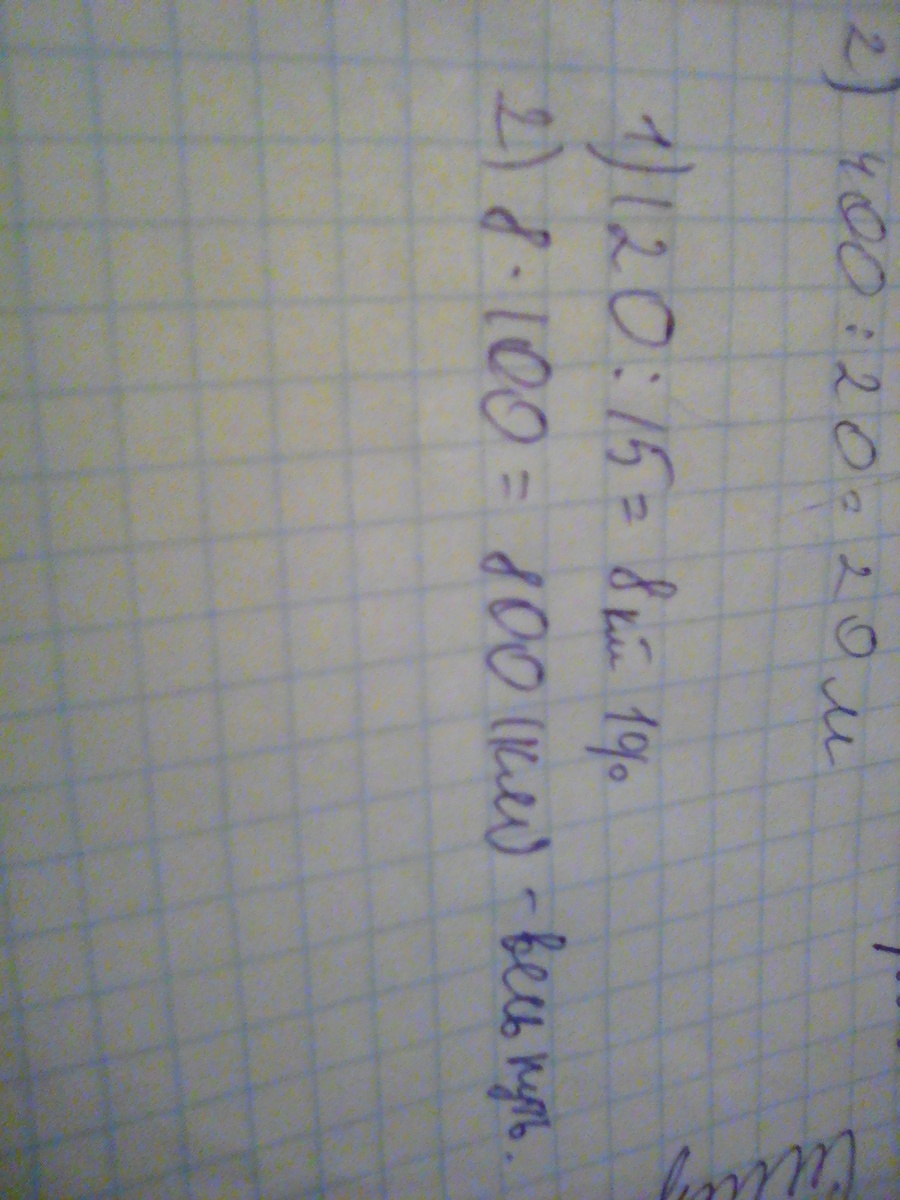 2) 400 : 20 = 20 м
1) 120 : 15 = 8 км 1%
2) 8 · 100 = 800 (км) - весь путь.